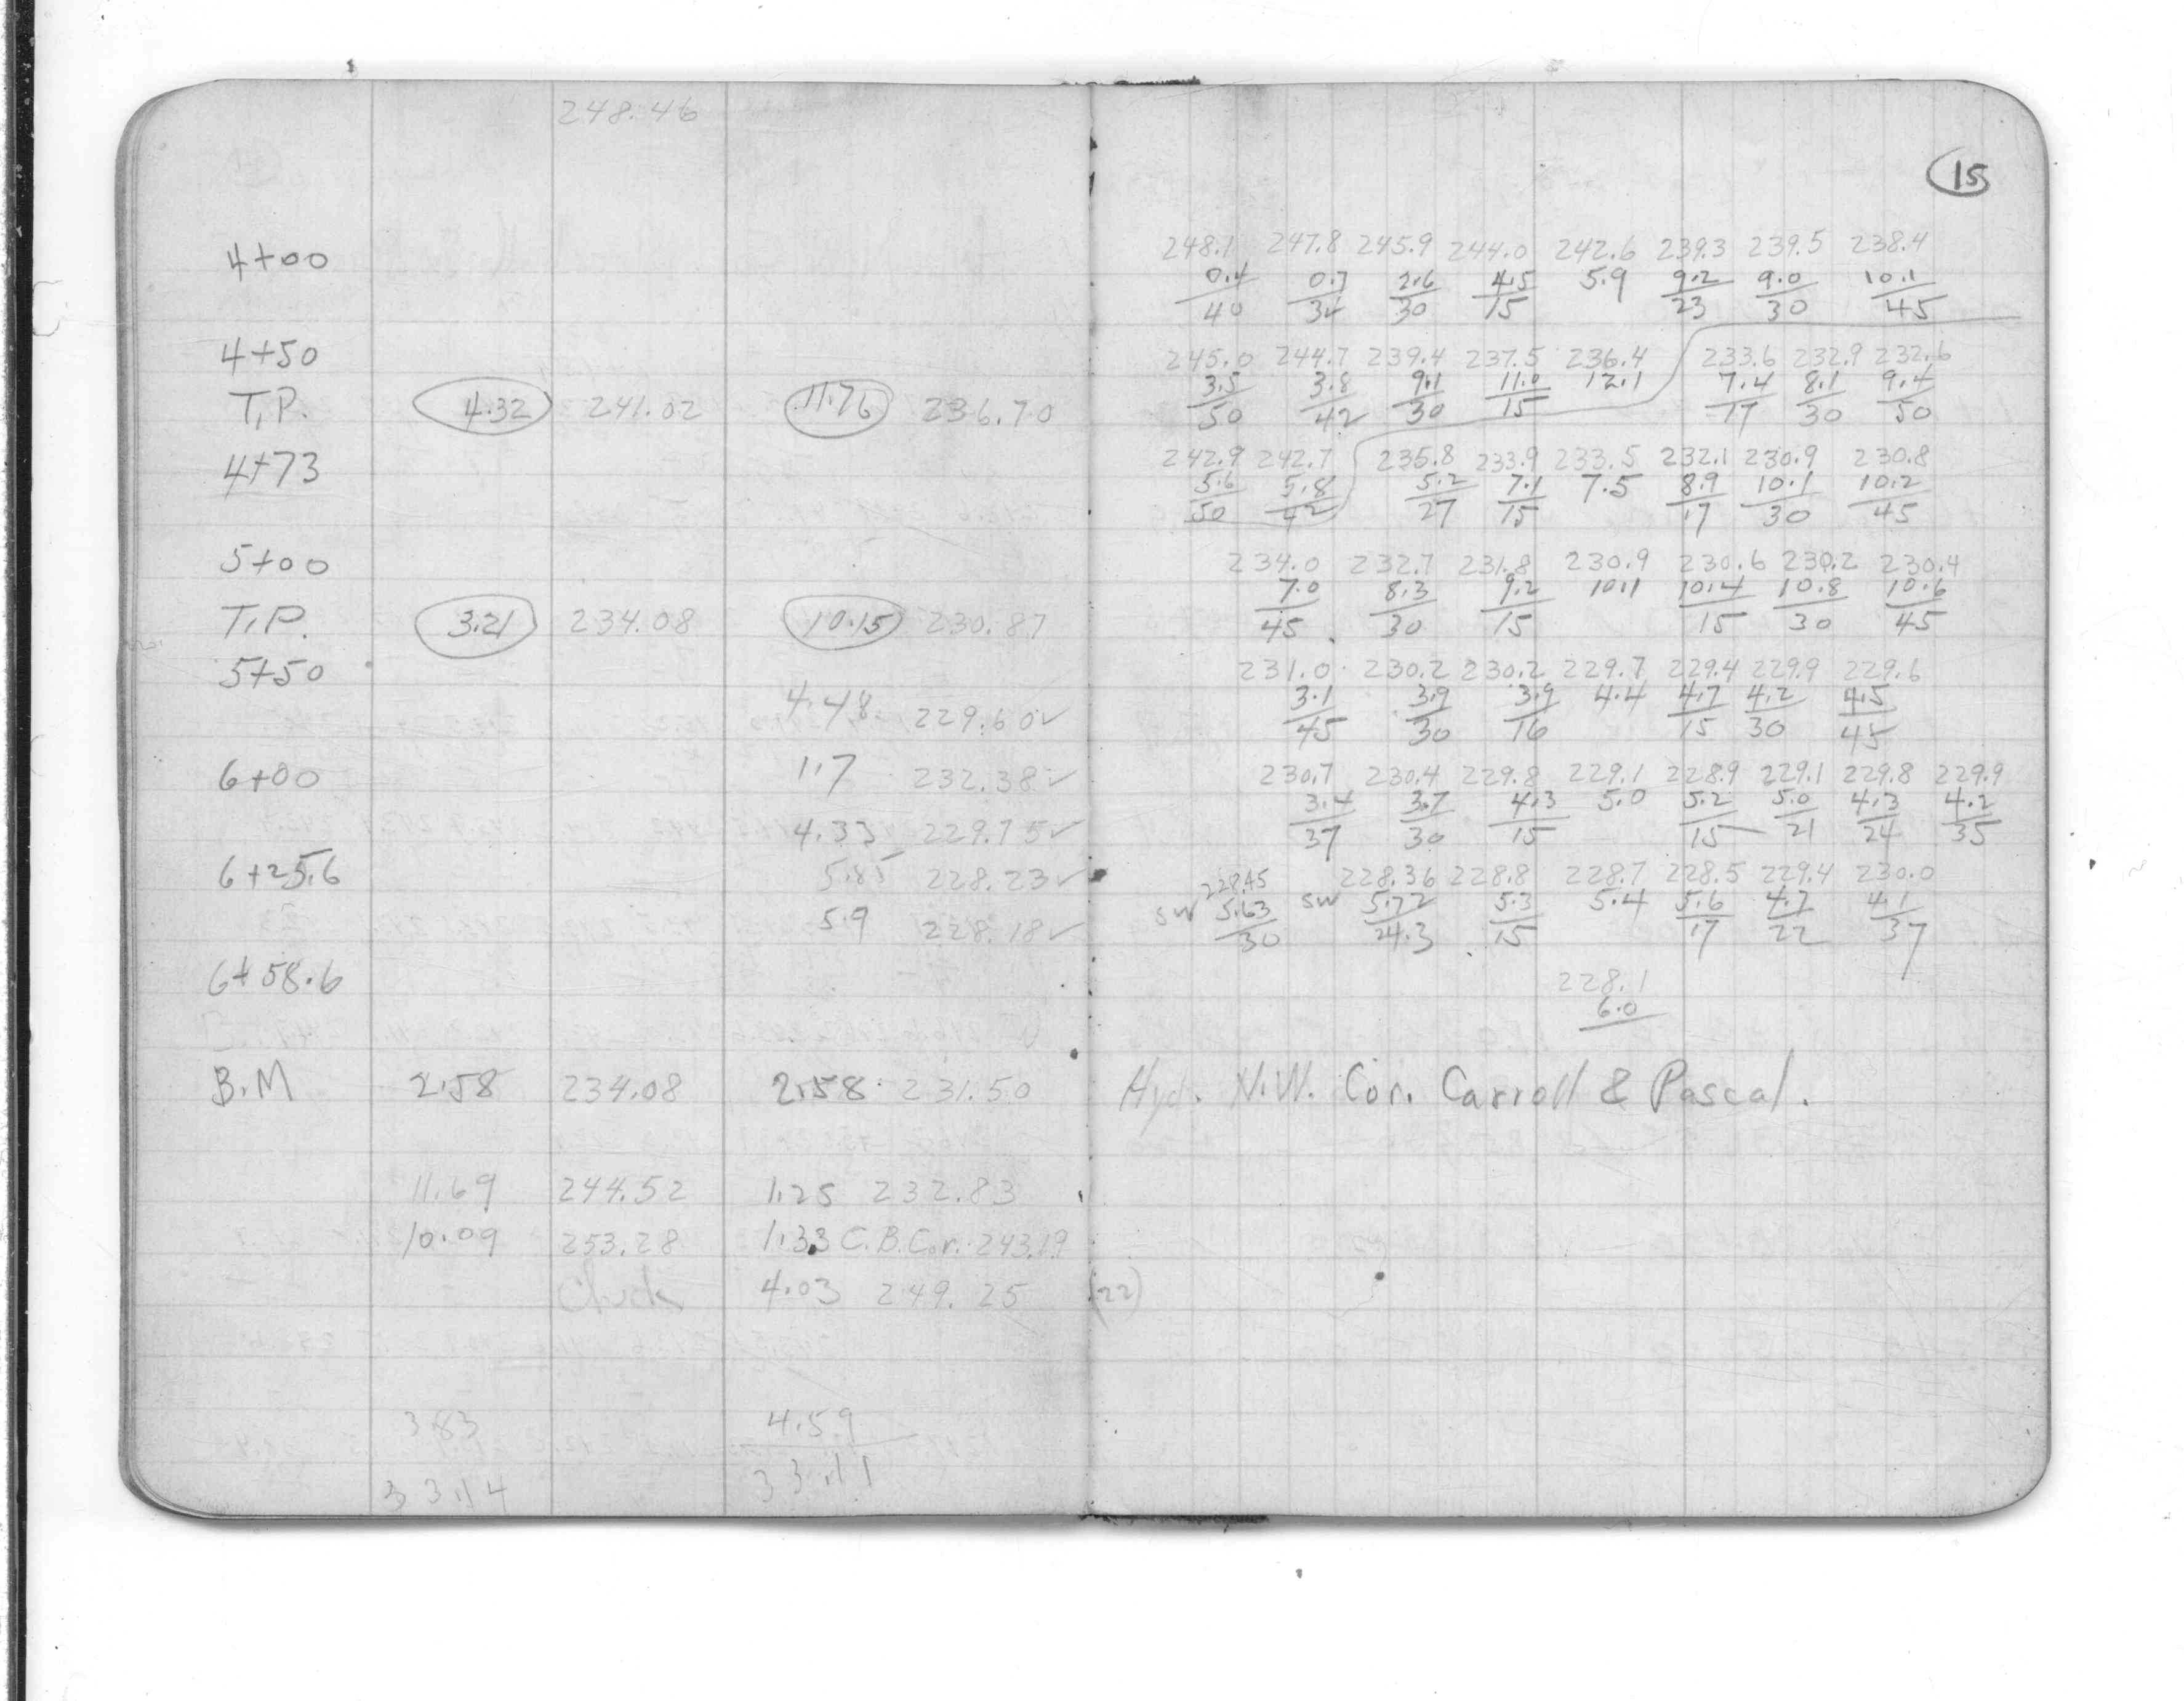 248.46
15
4+00 248.1 247.8 245.9 244.0 242.6 239.3 239.5 238.4
0.4 0.7 2.6 4.5 5.9 9.2 9.0 10.1
40 32 30 15 23 30 45
4+50 245.0 244.7 239.4 237.5 236.4 233.6 232.9 232.6
3.5 3.8 9.1 11.0 12.1 7.4 8.1 9.4
T.P. 4.32 241.02 11.76 236.70 50 42 30 15 17 30 50
4+73 242.9 242.7 235.8 233.9 233.5 232.1 230.9 230.8
5.6 5.8 5.2 7.1 7.5 8.9 10.1 10.2
50 42 27 15 17 30 45
5+00 234.0 232.7 231.8 230.9 230.6 230.2 230.4
7.0 8.3 9.2 10.1 10.4 10.8 10.6
T.P. 3.21 234.08 10.15 230.87 45 30 15 15 30 45
5+50 231.0 230.2 230.2 229.7 229.4 229.9 229.6
4.48 229.60✓ 3.1 3.9 3.9 4.4 4.7 4.2 4.5
45 30 16 15 30 45
6+00 1.7 232.38✓ 230.7 230.4 229.8 229.1 228.9 229.1 229.8 229.9
3.4 3.7 4.3 5.0 5.2 5.0 4.3 4.2
4.33 229.75✓ 37 30 15 15 21 24 35
6+25.6 5.85 228.23✓ 228.45 228.36 228.8 228.7 228.5 229.4 230.0
5.9 228.18✓ SW 5.63 SW 5.72 5.3 5.4 5.6 4.7 4.1
30 24.3 15 17 22 37
6+58.6 228.1
6.0
B.M 2.58 234.08 2.58 231.50 Hyd. N.W. Cor. Carroll & Pascal.
11.69 244.52 1.25 232.83
10.09 253.28 1.33 C.B.Cor. 243.19
Check 4.03 249.25 (22)
3.83 4.59
33.14 33.11